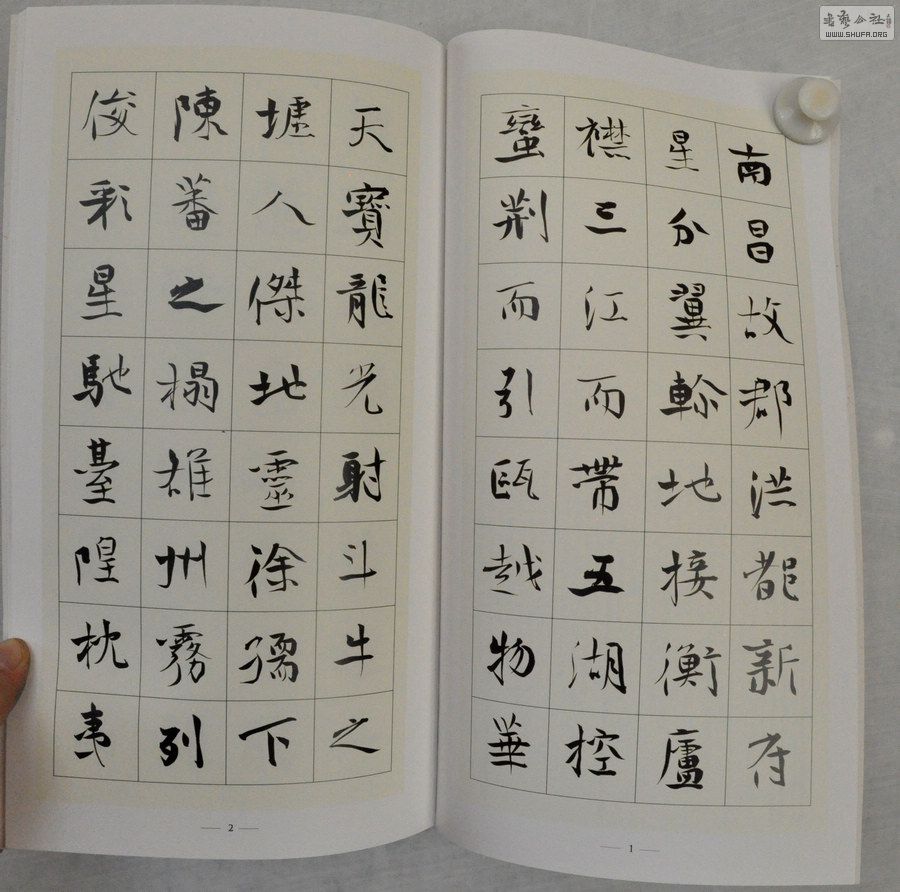 南昌故郡洪都新府
星分翼軫地接衡廬
襟三江而帶五湖控
蠻荆而引甌越物華
1
天寶龍光射斗牛之
墟人傑地靈徐孺下
陳蕃之榻雄州霧列
俊彩星馳臺隍枕夷
2
WWW.SHUFA.ORG